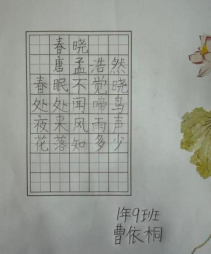 春晓
唐 孟浩然
春眠不觉晓
处处闻啼鸟
夜来风雨声
花落知多少
1年9班
曹依桐